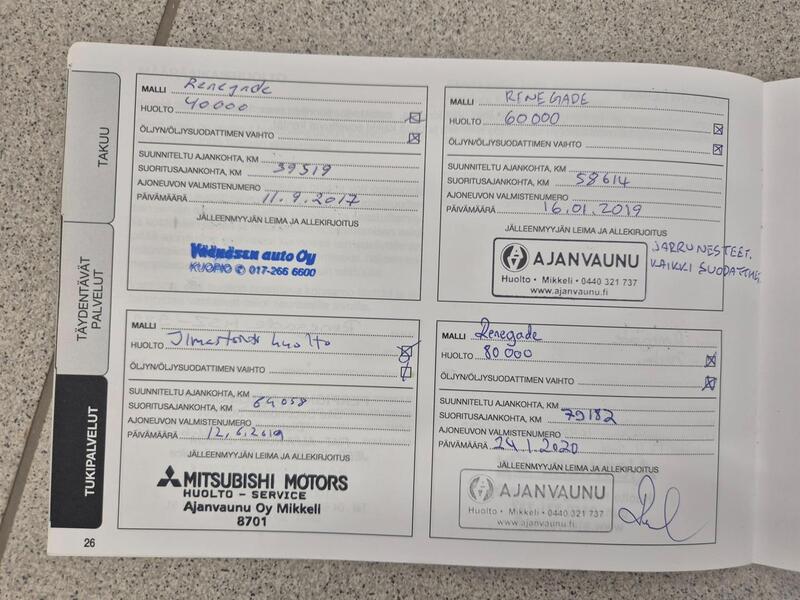 TAKUU
TÄYDENTÄVÄT
PALVELUT
TUKIPALVELUT
MALLI Renegade
HUOLTO 40000
ÖLJYN/ÖLJYSUODATTIMEN VAIHTO
SUUNNITELTU AJANKOHTA, KM
SUORITUSAJANKOHTA, KM 39519
AJONEUVON VALMISTENUMERO
PÄIVÄMÄÄRÄ 11.9.2017
JÄLLEENMYYJÄN LEIMA JA ALLEKIRJOITUS
Väänäsen auto Oy
KUOPIO 017-266 6600
MALLI RENEGADE
HUOLTO 60000
ÖLJYN/ÖLJYSUODATTIMEN VAIHTO
SUUNNITELTU AJANKOHTA, KM
SUORITUSAJANKOHTA, KM 58614
AJONEUVON VALMISTENUMERO
PÄIVÄMÄÄRÄ 16.01.2019
JÄLLEENMYYJÄN LEIMA JA ALLEKIRJOITUS
AJANVAUNU
Huolto • Mikkeli • 0440 321 737
www.ajanvaunu.fi
JARRUNESTEET.
KAIKKI
MALLI
HUOLTO huolto
ÖLJYN/ÖLJYSUODATTIMEN VAIHTO
SUUNNITELTU AJANKOHTA, KM
SUORITUSAJANKOHTA, KM 64058
AJONEUVON VALMISTENUMERO
PÄIVÄMÄÄRÄ 12.6.2019
JÄLLEENMYYJÄN LEIMA JA ALLEKIRJOITUS
MITSUBISHI MOTORS
HUOLTO - SERVICE
Ajanvaunu Oy Mikkeli
8701
MALLI Renegade
HUOLTO 80000
ÖLJYN/ÖLJYSUODATTIMEN VAIHTO
SUUNNITELTU AJANKOHTA, KM
SUORITUSAJANKOHTA, KM 79182
AJONEUVON VALMISTENUMERO
PÄIVÄMÄÄRÄ 24.1.2020
JÄLLEENMYYJÄN LEIMA JA ALLEKIRJOITUS
AJANVAUNU
Huolto • Mikkeli • 0440 321 737
www.ajanvaunu.fi
26